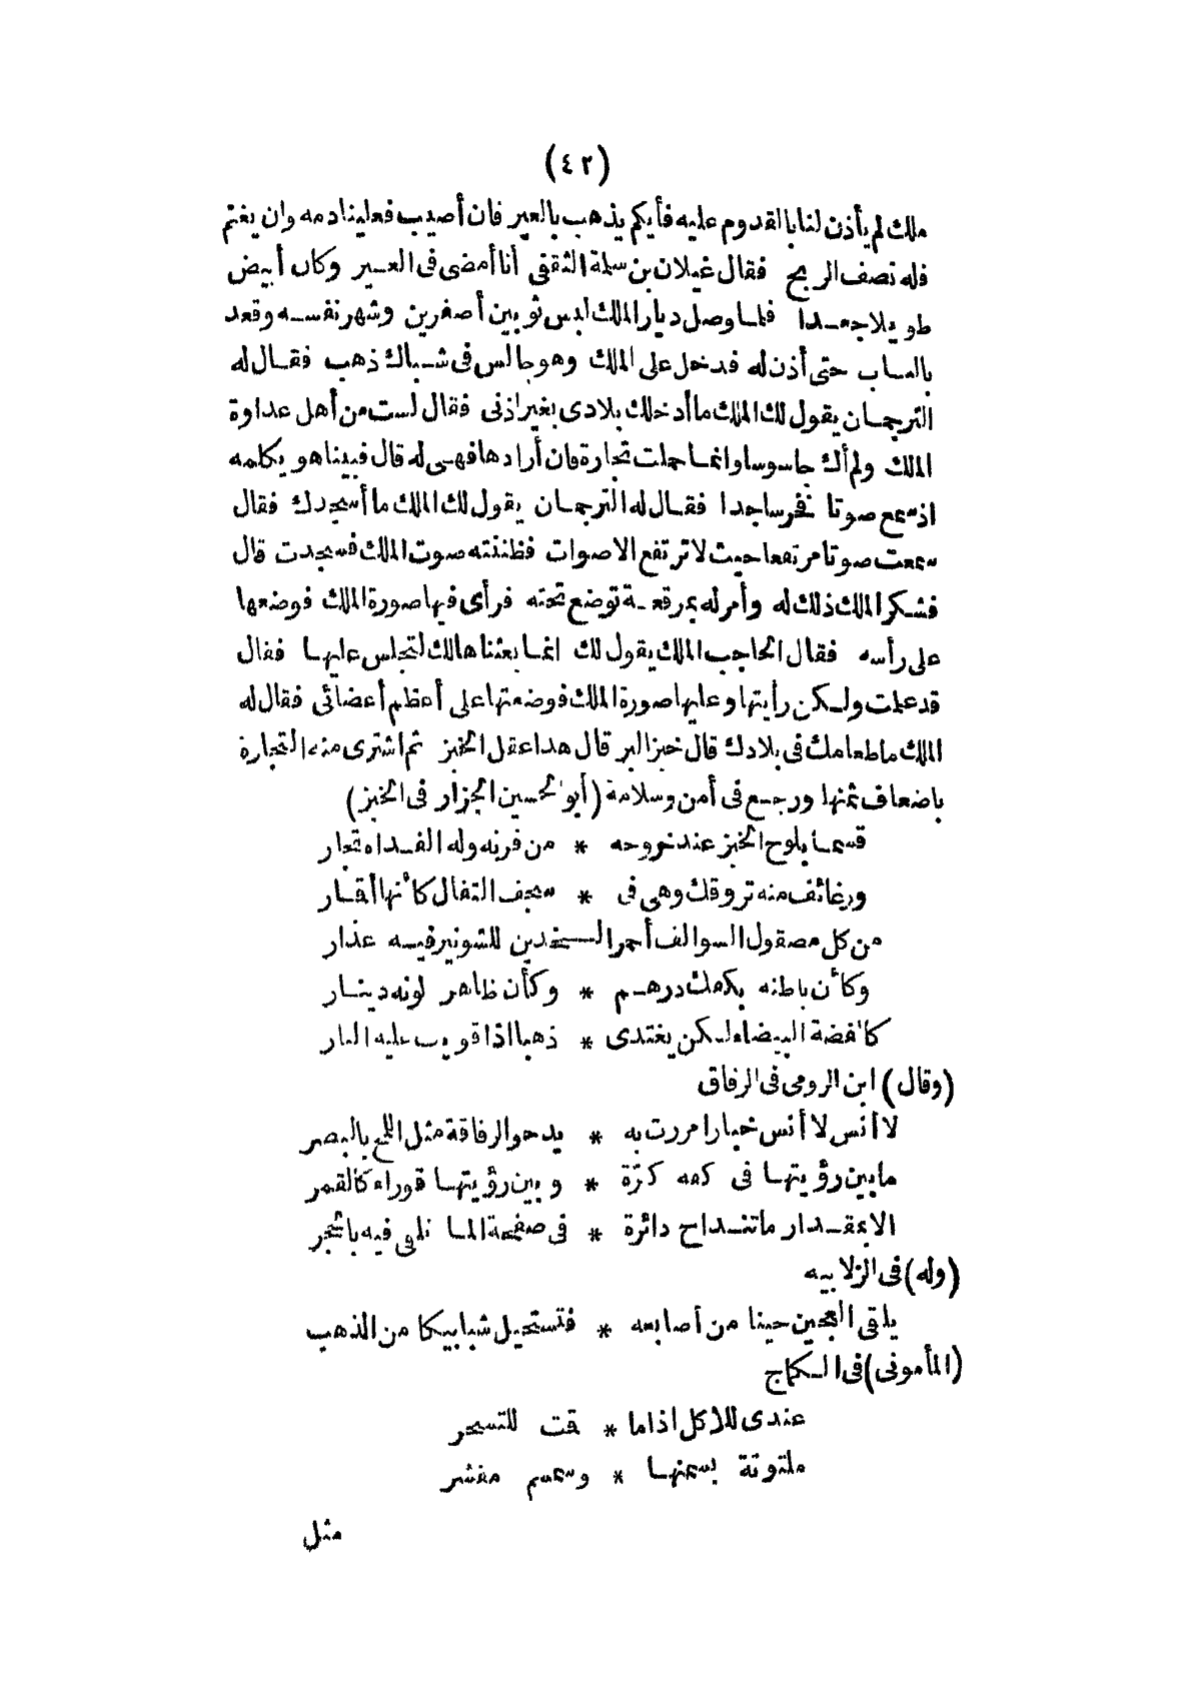 (٤٢)
ملك لم يأذن لنا بالقدوم عليه فأيكم يذهب بالعير فان أصيب فعلينا دمه وان يغنم
فله نصف الربح فقال غيلان بن سلمة الثقفى أنا أمضى فى العير وكان أبيض
طويلا جعدا فلما وصل ديار الملك لبس ثوبين أصفرين وشهر نفسه وقعد
بالباب حتى أذن له فدخل على الملك وهو جالس فى شباك ذهب فقال له
الترجمان يقول لك الملك ما أدخلك بلادى بغير اذنى فقال لست من أهل عداوة
الملك ولم أك جاسوسا وانما حملت تجارة فان أرادها فهى له قال فبينا هو يكلمه
اذ سمع صوتا فخر ساجدا فقال له الترجمان يقول لك الملك ما أسجدك فقال
سمعت صوتا مرتفعا حيث لا ترتفع الاصوات فظننته صوت الملك فسجدت قال
فشكر الملك ذلك له وأمر له بمرقعة توضع تحته فرأى فيها صورة الملك فوضعها
على رأسه فقال الحاجب الملك يقول لك انما بعثنا هالك لتجلس عليها فقال
قد علمت ولكن رأيتها وعليها صورة الملك فوضعتها على أعظم أعضائى فقال له
الملك ما طعامك فى بلادك قال خبز البر قال هذا عقل الخبز ثم اشترى منه التجارة
باضعاف ثمنها ورجع فى أمن وسلامة (أبو الحسين الجزار فى الخبز)
قسما بلوح الخبز عند خروجه * من فرنه وله الغداه تجار
ورغائف منه تروقك وهى فى * سجف التفال كأنها أقمار
من كل مصقول السوالف أحمر الخدين للشونيز فيه عذار
وكأن باطنه بكفك درهم * وكأن ظاهر لونه دينار
كالفضة البيضاء لكن يغتدى * ذهبا اذا قويت عليه النار
(وقال) ابن الرومى فى الرقاق
لا أنس لا أنس خبازا مررت به * يدحو الرقاقة مثل اللمح بالبصر
ما بين رؤيتها فى كفه كرّة * وبين رؤيتها قوراء كالقمر
الا بمقدار ما تنداح دائرة * فى صفحة الما يلقى فيه بالحجر
(وله) فى الزلابيه
يلقى العجين حينا من أصابعه * فتستحيل شبابيكا من الذهب
(المأمونى) فى الكماج
عندى للاكل اذا ما * قمت للتسحر
ملتوتة بسمنها * وسمسم مقشر
مثل